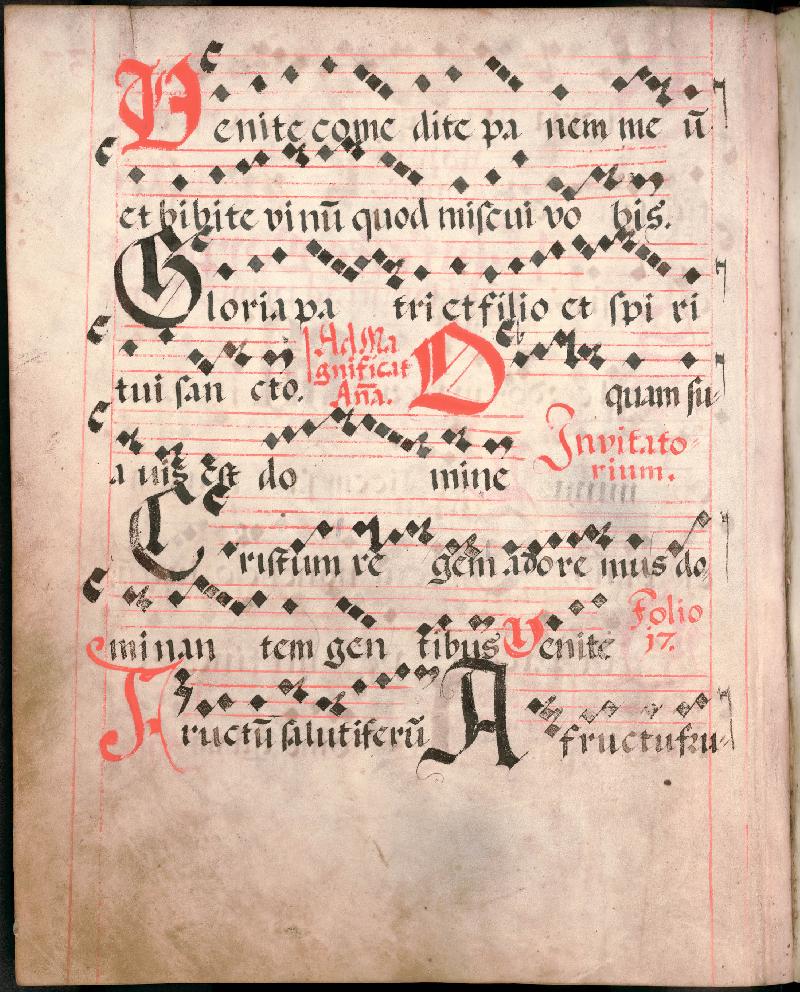 Venite comedite pa nem me ū
et bibite vi nū quod miscui vo bis.
Gloria pa tri et filio et spi ri
tui san cto. Ad Ma gnificat Aña. O quam su-
a uis est do mine Invitato- rium.
Cristum re gem adore mus do
minan tem gen tibus Venite Folio 17.
Fructū salutiferū A fructu fru-